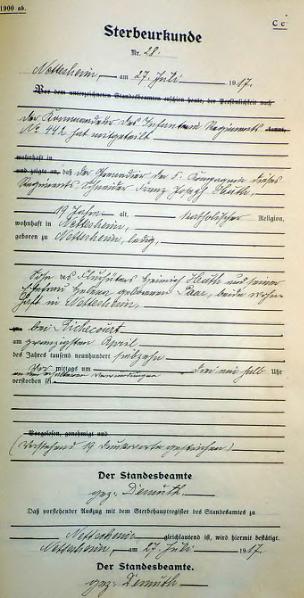 1900 ab.
C c
Sterbeurkunde
Nr. 28.
Nettersheim, am 27. Juli 1917.
Vor dem unterzeichneten Standesbeamten erschien heute, der Persönlichkeit nach
Der Kommandeur des Infanterie Regiments
No. 442 hat mitgeteilt
wohnhaft in
und zeigte an, daß der Grenadier der 5. Kompagnie dieses
Regiments Schneider Franz Joseph Huth,
19 Jahre alt, katholischer Religion,
wohnhaft in Nettersheim,
geboren zu Nettersheim, ledig,
Sohn des Heinrich Huth und seiner
Ehefrau geborenen beide wohn-
haft in Nettersheim,
bei
am zwanzigsten April
des Jahres tausend neunhundert siebzehn
Vormittags um drei ein halb Uhr
verstorben sei
Vorgelesen, genehmigt und
(Vorstehend 19 Druckworte gestrichen)
Der Standesbeamte
gez. Demuth.
Daß vorstehender Auszug mit dem Sterbehauptregister des Standesamtes zu
Nettersheim gleichlautend ist, wird hiermit bestätigt.
Nettersheim, am 27. Juli 1917.
Der Standesbeamte.
gez. Demuth